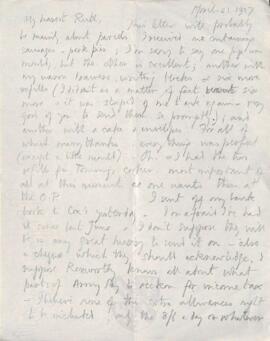 April 21. 1917
My dearest Ruth,
This letter will probably
be mainly about parcels. I received one containing
sausages & pork pies; I'm sorry to say one pie was
mouldy, but the other is excellent; another with
my razor
refills (I didn't as a matter of fact want six
more it was stupid of me to ask again – very
good of you to send them so promptly); and
another with a cake & envelopes. For all of
which many thanks – everything was perfect
(except a little mould) – Oh! & I had the two
refills for Tommy's cooker – most important of
all at this moment as one wants them at
the O.P.
I sent off my bank
book to Cox's yesterday. I'm afraid I've had
it since last June. I don't suppose they will
be in any great hurry to send it on – also
a cheque which they should acknowledge. I
suppose Kexworthy knows all about what
part of Army Pay to reckon for income tax
– I believe none of the extra allowances ought
to be included – not the 3/6 a day or whatever